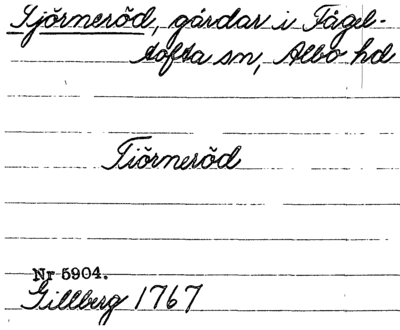 Sjörneröd, gårdar i Fågel-
tofta sn, Albo hd
Tiörneröd
Nr 5904.
Gillberg 1767